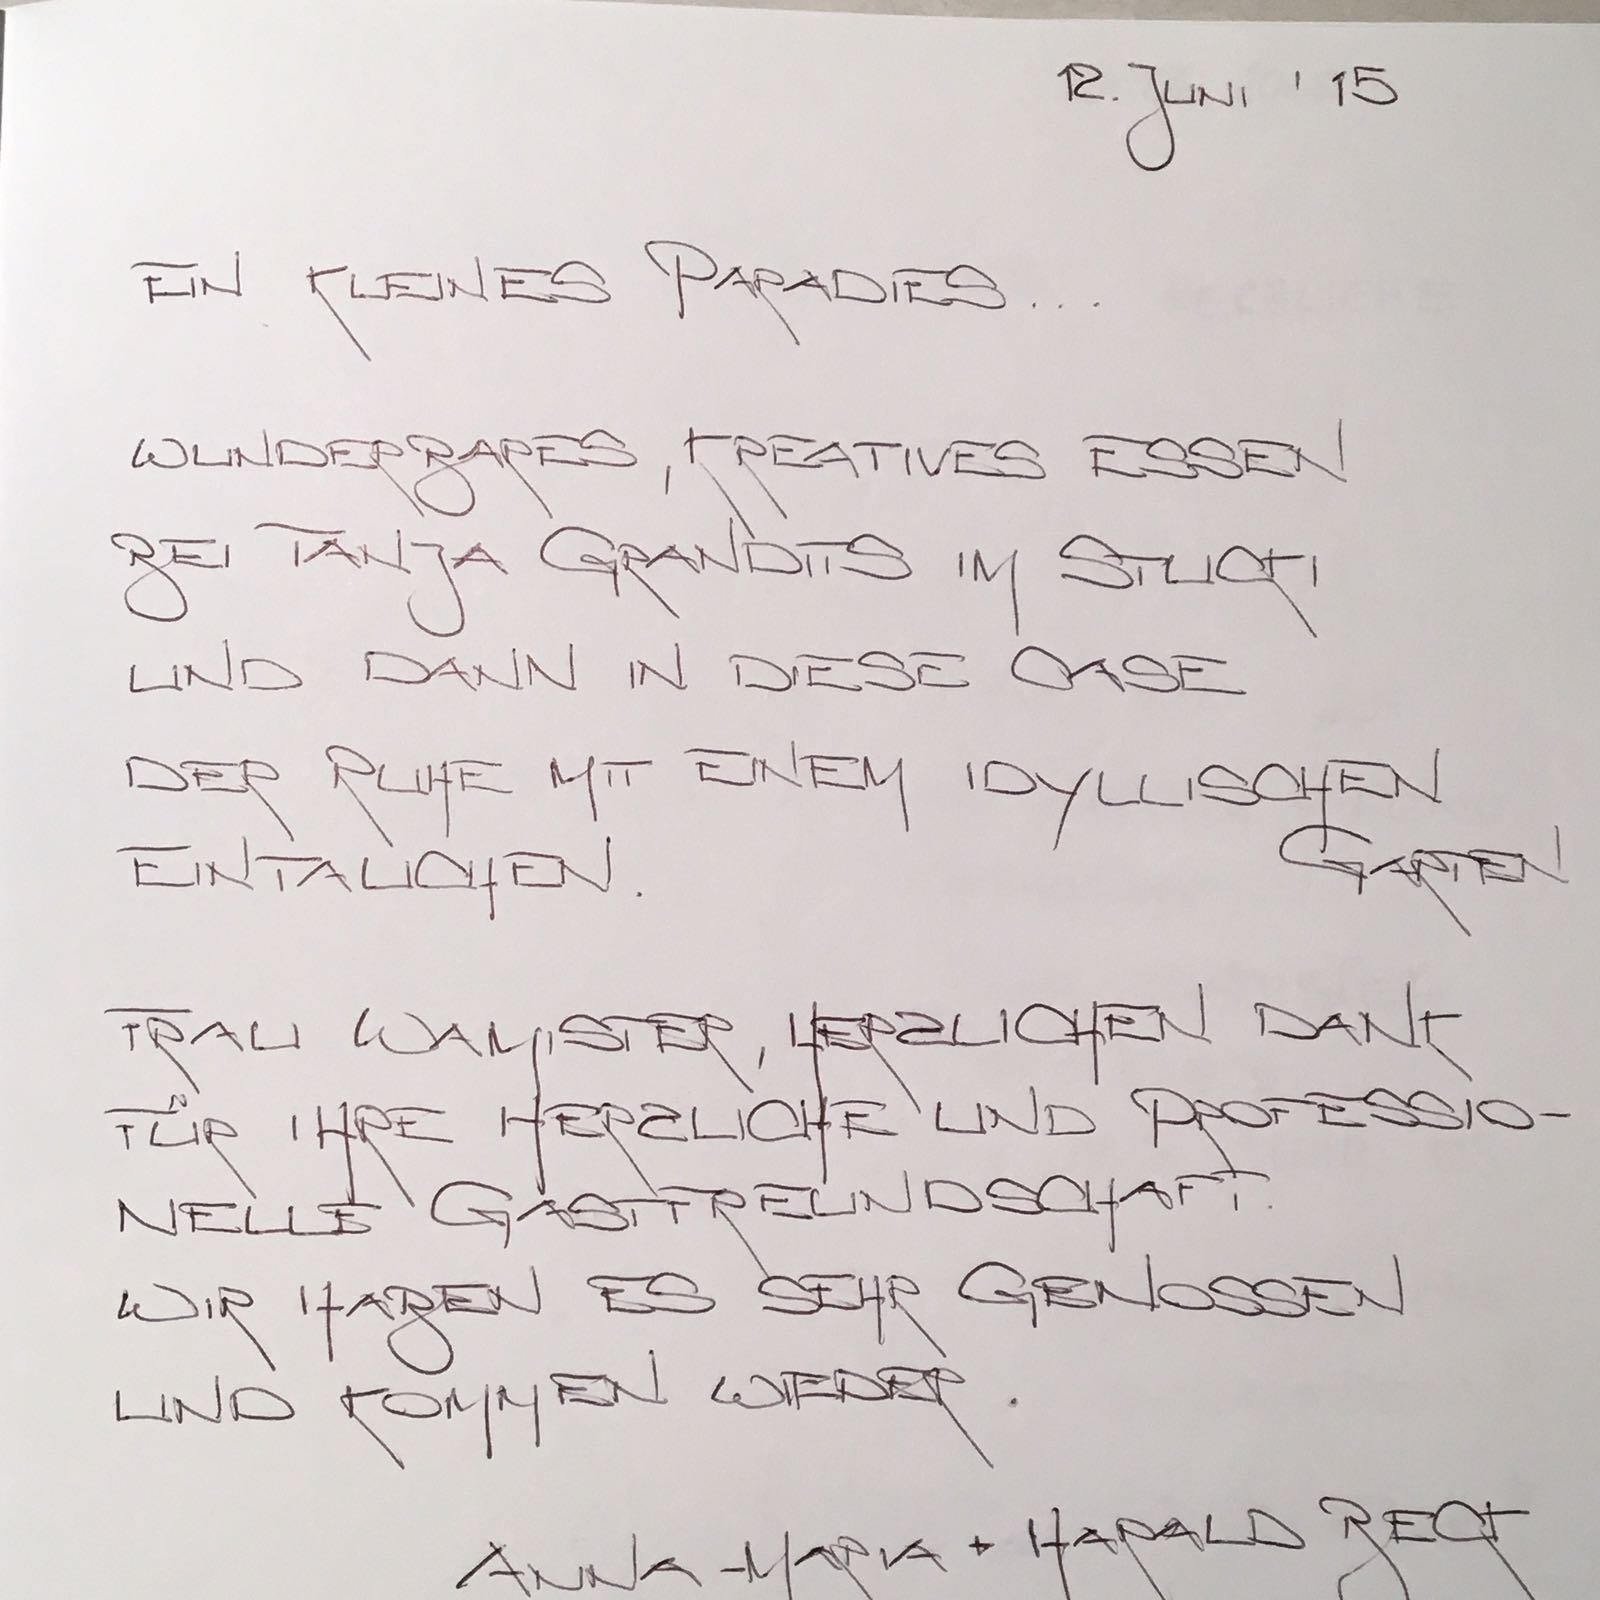 12. Juni '15
Ein kleines Paradies...
wunderbares, kreatives Essen
bei Tanja Grandits im Stucki
und dann in diese Oase
der Ruhe mit einem idyllischen
Garten
eintauchen.
Frau Wamister, herzlichen Dank
für Ihre herzliche und professio-
nelle Gastfreundschaft.
Wir haben es sehr genossen
und kommen wieder.
Anna-Maria + Harald Beck